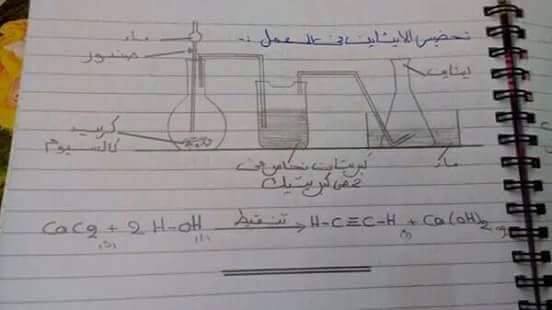 تحضير الايثاين فى المعمل :-
ماء
صنبور
ايثاين
كربيد
كالسيوم
كبريتات نحاس فى
حمض كبريتيك
ماء
CaC2(s) + 2 H-OH(l) تنقيط → H-C≡C-H(g) + Ca(OH)2